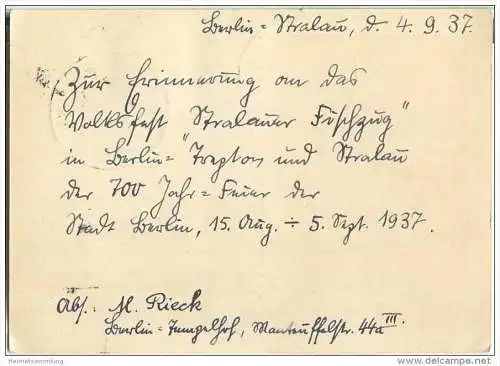 Berlin = Stralau, d. 4. 9. 37.
Zur Erinnerung an das
Volksfest "Stralauer Fischzug"
in Berlin = Treptow und Stralau
der 700 Jahr = Feier der
Stadt Berlin, 15. Aug. ÷ 5. Sept. 1937.
Abs.: M. Rieck
Berlin = Tempelhof, Manteuffelstr. 44a III.
heimatsammlung
www.delcampe.net